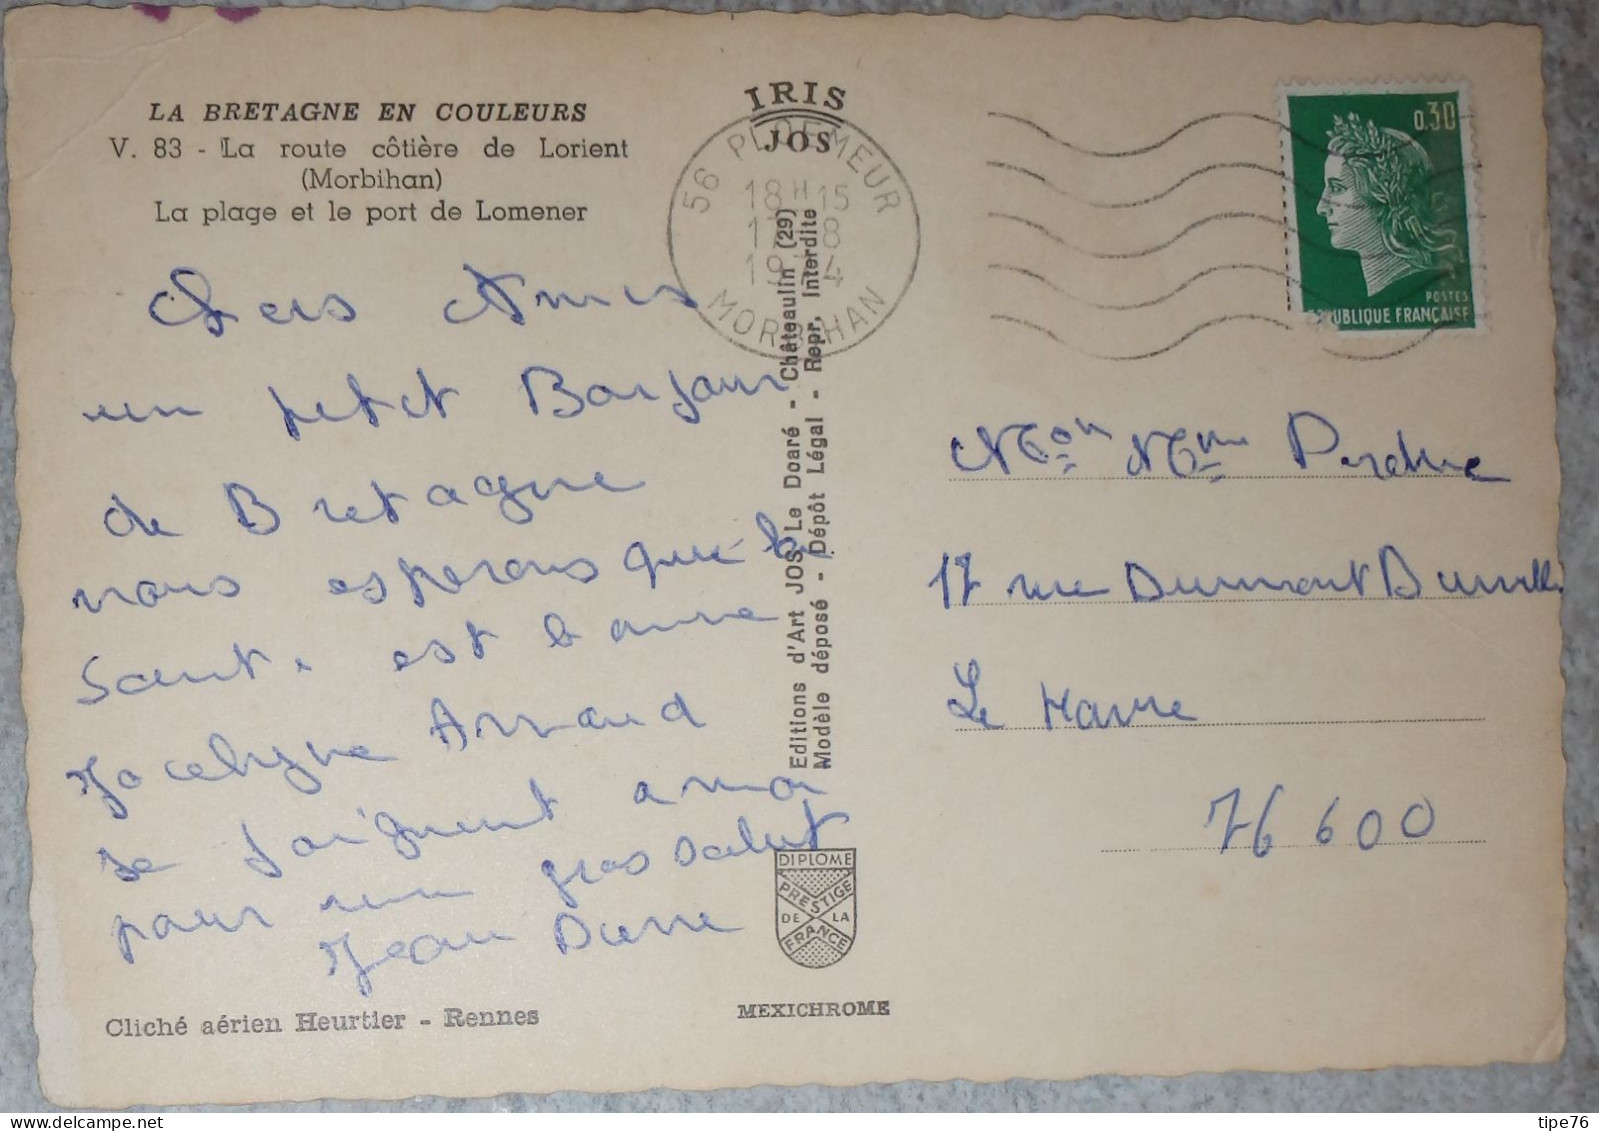 LA BRETAGNE EN COULEURS
V. 83 - La route côtière de Lorient
(Morbihan)
La plage et le port de Lomener
Chers Amis
un petit Bonjour
de Bretagne
nous esperons que la
Santé est bonne
Jocelyne Arnaud
se joignent a moi
pour un gros salut
Jean
Cliché aérien Heurtier - Rennes
IRIS
JOS
56 PLOEMEUR
18H15
MORBIHAN
Editions d'Art JOS Le Doaré - Châteaulin (29)
Modèle déposé - Dépôt Légal - Repr. Interdite
DIPLOME
PRESTIGE
DE LA
FRANCE
MEXICHROME
0,30
POSTES
REPUBLIQUE FRANÇAISE
Mon Mme
17 rue Dumont
Le Havre
76 600
tipe76